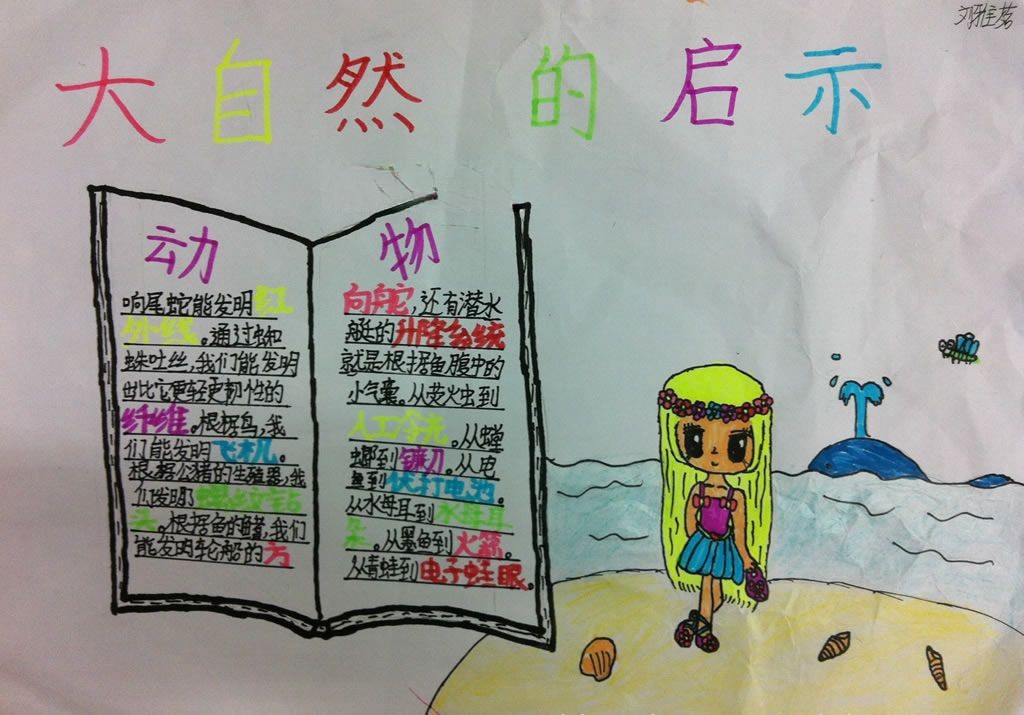 刘雅茗
大自然的启示
动
响尾蛇能发明红
外线。通过蜘
蛛吐丝,我们能发明
出比它更轻更韧性的
纤维。根据鸟,我
们能发明飞机。
根据公猪的生殖器,我
们发明了螺丝纹钻
头。根据鱼的鳍,我们
能发明轮船的方
物
向舵,还有潜水
艇的升降系统
就是根据鱼腹中的
小气囊。从萤火虫到
人工冷光。从螳
螂到镰刀。从电
鱼到伏打电池。
从水母耳到水母耳
朵。从墨鱼到火箭。
从青蛙到电子蛙眼。